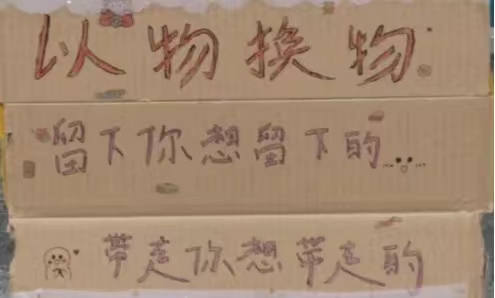 以物换物
留下你想留下的
带走你想带走的